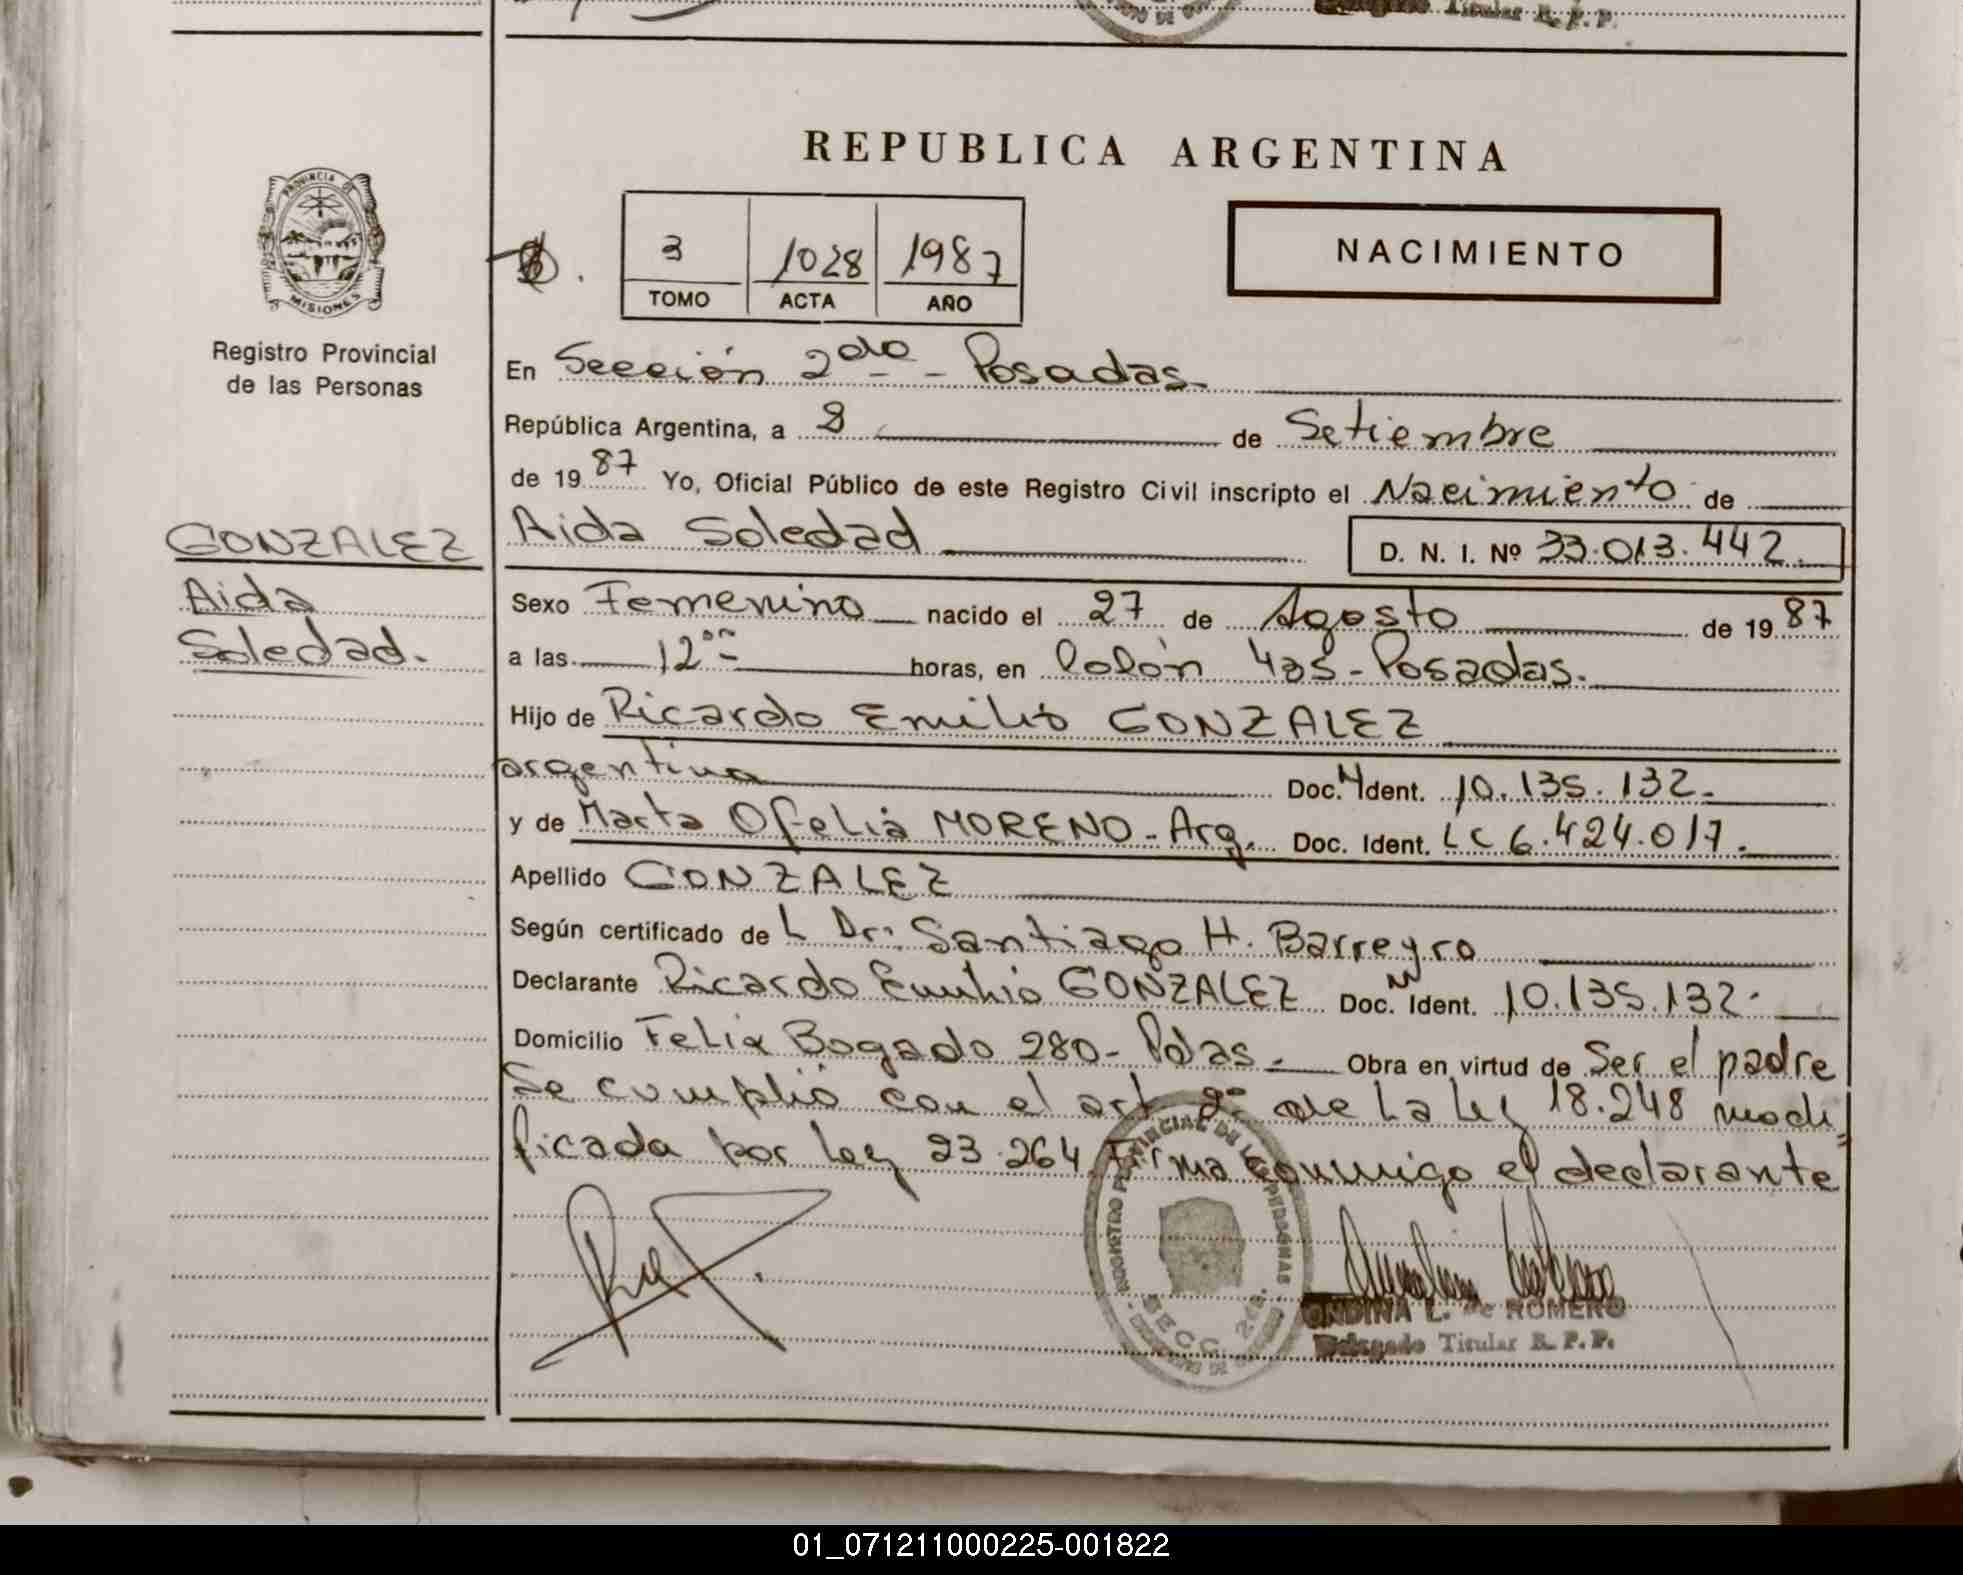 Titular R. P. P.
REPUBLICA ARGENTINA
PROVINCIA DE
MISIONES
Registro Provincial
de las Personas
3 1028 1987
TOMO ACTA AÑO
NACIMIENTO
En Sección 2da - Posadas
República Argentina, a 8 de Setiembre
de 1987 Yo, Oficial Público de este Registro Civil inscripto el Nacimiento de
GONZALEZ
Aida
Soledad.
Aida Soledad D. N. I. Nº 33.013.442.
Sexo Femenino nacido el 27 de Agosto de 1987
a las 12 horas, en Colón 435 - Posadas.
Hijo de Ricardo Emilio GONZALEZ
argentina Doc. N Ident. 10.135.132.
y de Marta Ofelia MORENO - Arg. Doc. Ident. LC 6.424.017.
Apellido GONZALEZ
Según certificado de L Dr. Santiago H. Barreyro
Declarante Ricardo Emilio GONZALEZ Doc. N Ident. 10.135.132.
Domicilio Felix Bogado 280 - Pdas. Obra en virtud de Ser el padre
Se cumplió con el art 2º de la ley 18.248 modi
ficada por ley 23.264 Firma conmigo el declarante
SECC. 2da.
ONDINA L. de ROMERO
Delegado Titular R. P. P.
01_071211000225-001822